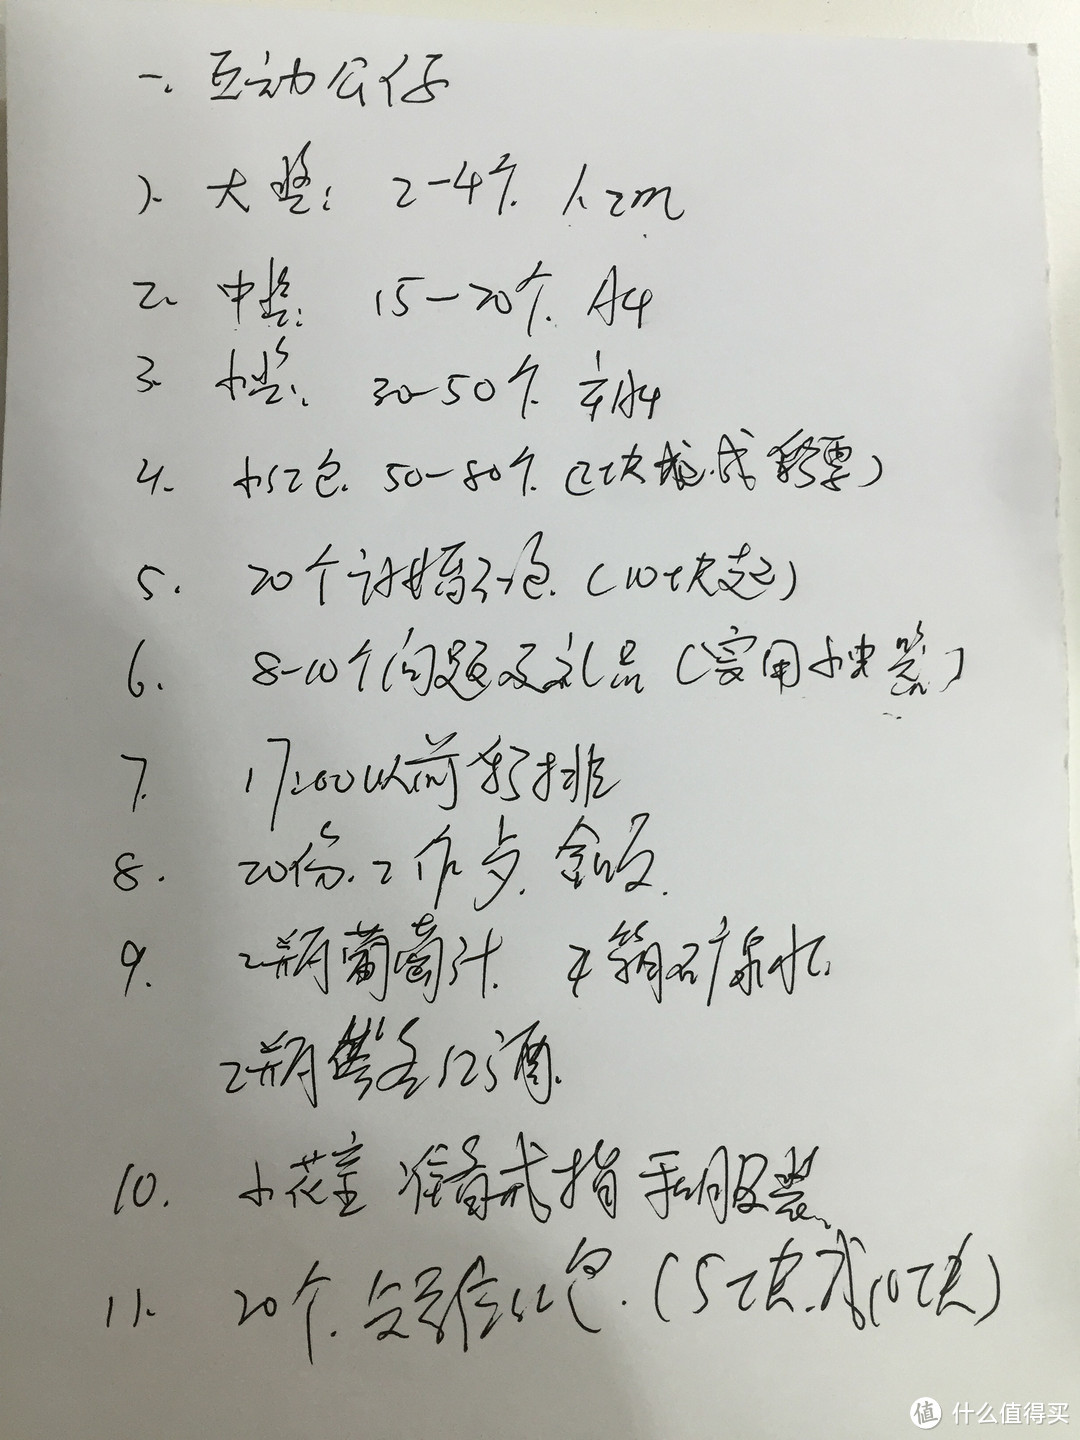 一、互动公仔
1. 大奖：2-4个 1.2m
2. 中奖：15-20个 A4
3. 小奖：30-50个 半A4
4. 小红包 50-80个（2块或彩票）
5. 20个讨婚红包（10块起）
6. 8-10个问题及礼品（实用抽奖）
7. 17:00以前彩排
8. 20份工作 餐
9. 2瓶葡萄汁 4箱矿泉水
2瓶 红酒
10. 小花童准备戒指 服装
11. 20个 红包（5块或10块）
值 什么值得买